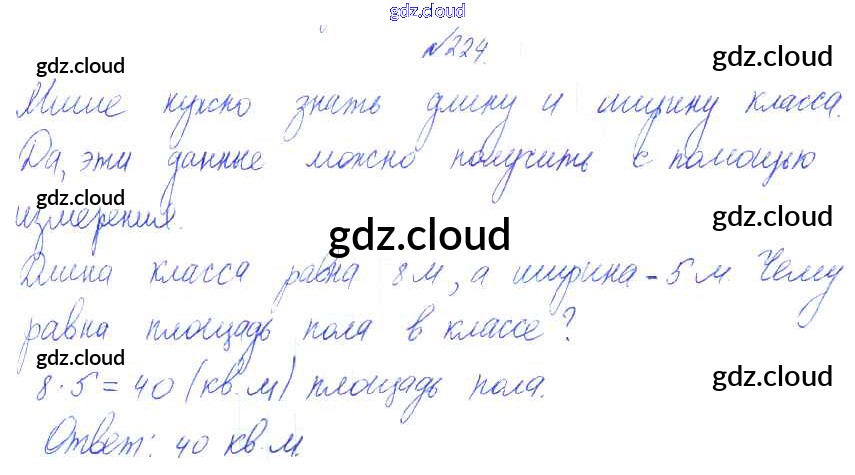 gdz.cloud
№224.
gdz.cloud gdz.cloud
Мише нужно знать длину и ширину класса.
Да, эти данные можно получить с помощью
gdz.cloud gdz.cloud
измерения.
gdz.cloud
Длина класса равна 8 м, а ширина - 5 м. Чему
равна площадь пола в классе?
gdz.cloud gdz.cloud
8 · 5 = 40 (кв. м) площадь пола.
Ответ: 40 кв. м.